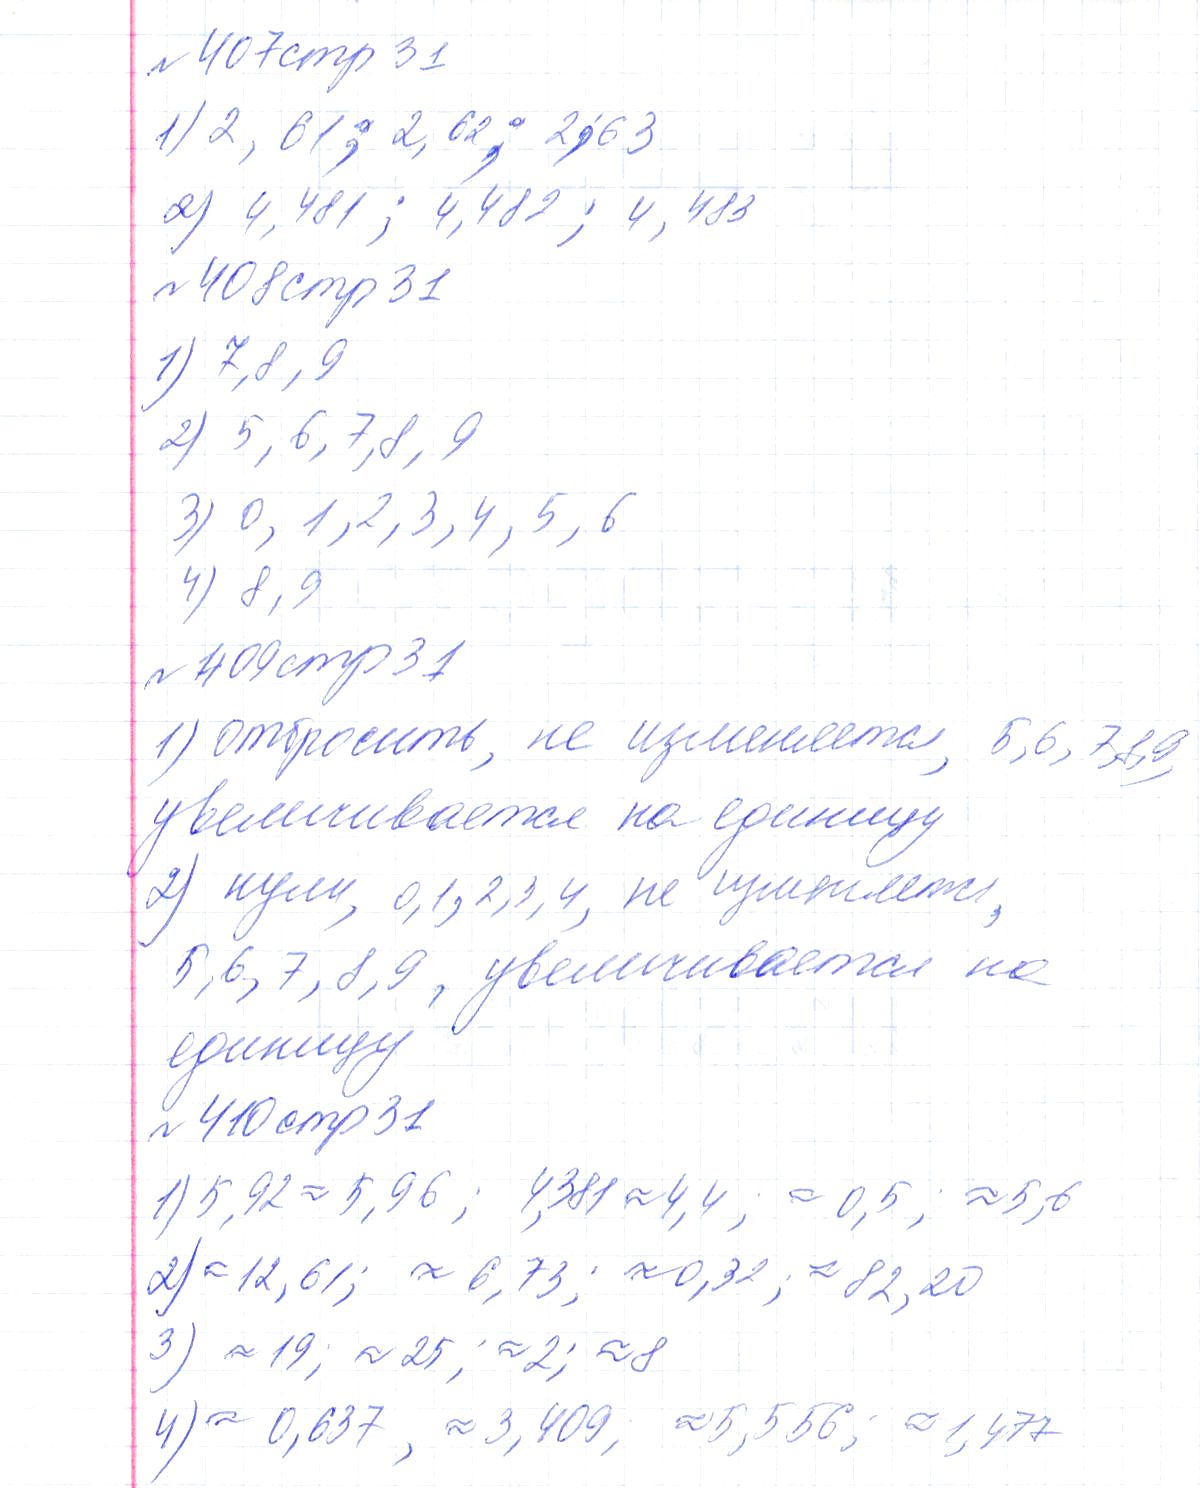 №407стр 31
1) 2,61; 2,62; 2,63
2) 4,481; 4,482; 4,483
№408стр 31
1) 7,8,9
2) 5,6,7,8,9
3) 0,1,2,3,4,5,6
4) 8,9
№409стр 31
1) отбросить, не изменяется, 5,6,7,8,9,
увеличивается на единицу
2) нули, 0,1,2,3,4, не изменяется,
5,6,7,8,9, увеличивается на
единицу
№410стр 31
1) 5,92≈5,96; 4,381≈4,4; ≈0,5; ≈5,6
2) ≈12,61; ≈6,73; ≈0,32; ≈82,20
3) ≈19; ≈25; ≈2; ≈8
4) ≈0,637, ≈3,409; ≈5,556; ≈1,477